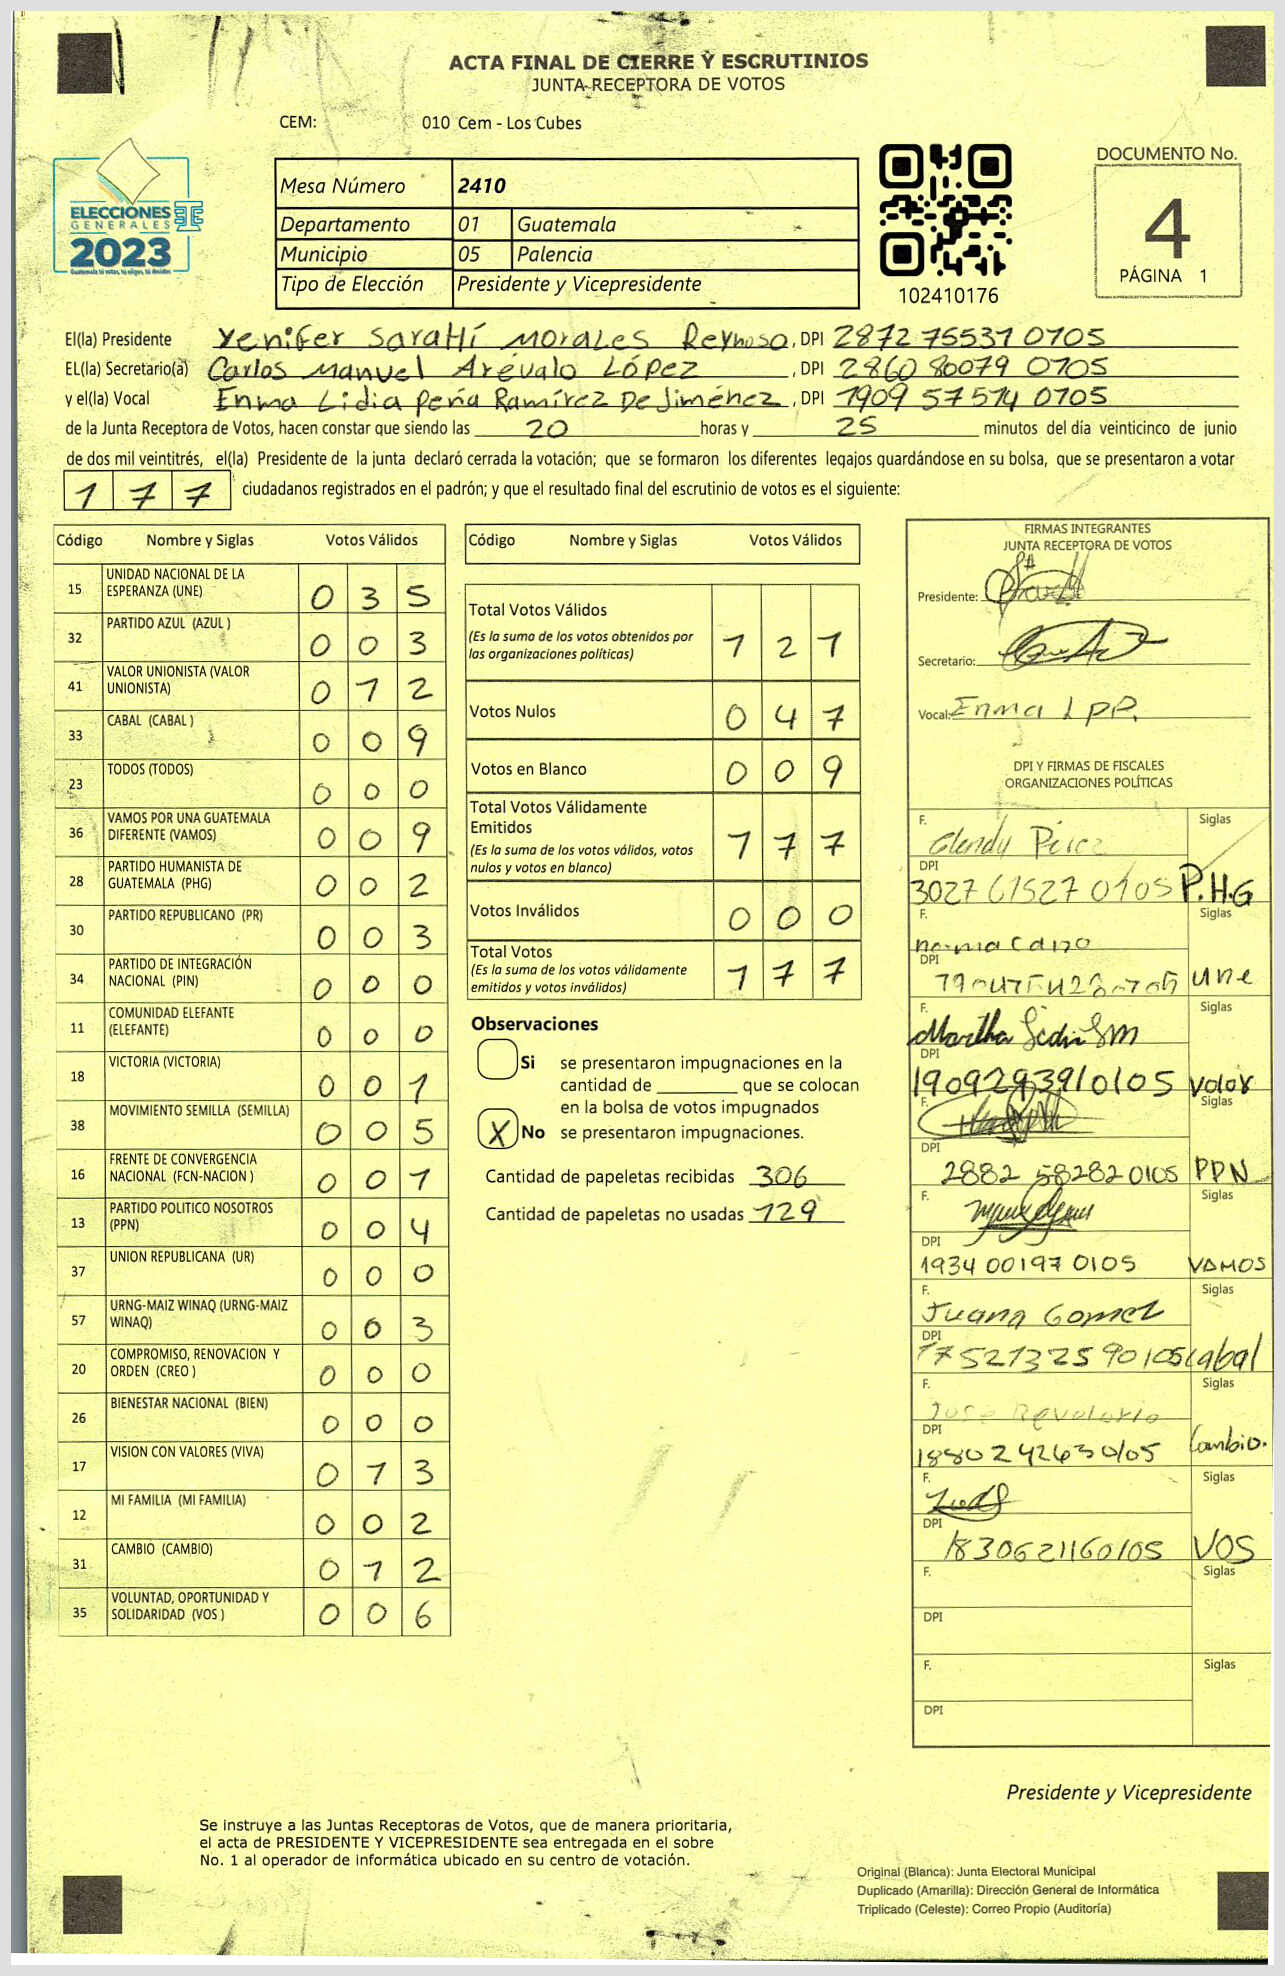 ACTA FINAL DE CIERRE Y ESCRUTINIOS
JUNTA RECEPTORA DE VOTOS
CEM: 010 Cem - Los Cubes
ELECCIONES
GENERALES
2023
Guatemala tú votas, tú eliges, tú decides
Mesa Número 2410
Departamento 01 Guatemala
Municipio 05 Palencia
Tipo de Elección Presidente y Vicepresidente
102410176
DOCUMENTO No.
4
PÁGINA 1
El(la) Presidente Yenifer Sarahí Morales Reynoso, DPI 2872 75537 0705
EL(la) Secretario(a) Carlos Manuel Arévalo López, DPI 2860 80079 0705
y el(la) Vocal Enma Lidia Peña Ramírez De Jiménez, DPI 1909 57574 0705
de la Junta Receptora de Votos, hacen constar que siendo las 20 horas y 25 minutos del día veinticinco de junio
de dos mil veintitrés, el(la) Presidente de la junta declaró cerrada la votación; que se formaron los diferentes legajos guardándose en su bolsa, que se presentaron a votar
177 ciudadanos registrados en el padrón; y que el resultado final del escrutinio de votos es el siguiente:
Código Nombre y Siglas Votos Válidos
15 UNIDAD NACIONAL DE LA ESPERANZA (UNE) 0 3 5
32 PARTIDO AZUL (AZUL ) 0 0 3
41 VALOR UNIONISTA (VALOR UNIONISTA) 0 1 2
33 CABAL (CABAL ) 0 0 9
23 TODOS (TODOS) 0 0 0
36 VAMOS POR UNA GUATEMALA DIFERENTE (VAMOS) 0 0 9
28 PARTIDO HUMANISTA DE GUATEMALA (PHG) 0 0 2
30 PARTIDO REPUBLICANO (PR) 0 0 3
34 PARTIDO DE INTEGRACIÓN NACIONAL (PIN) 0 0 0
11 COMUNIDAD ELEFANTE (ELEFANTE) 0 0 0
18 VICTORIA (VICTORIA) 0 0 1
38 MOVIMIENTO SEMILLA (SEMILLA) 0 0 5
16 FRENTE DE CONVERGENCIA NACIONAL (FCN-NACION ) 0 0 1
13 PARTIDO POLITICO NOSOTROS (PPN) 0 0 4
37 UNION REPUBLICANA (UR) 0 0 0
57 URNG-MAIZ WINAQ (URNG-MAIZ WINAQ) 0 0 3
20 COMPROMISO, RENOVACION Y ORDEN (CREO ) 0 0 0
26 BIENESTAR NACIONAL (BIEN) 0 0 0
17 VISION CON VALORES (VIVA) 0 1 3
12 MI FAMILIA (MI FAMILIA) 0 0 2
31 CAMBIO (CAMBIO) 0 1 2
35 VOLUNTAD, OPORTUNIDAD Y SOLIDARIDAD (VOS ) 0 0 6
Código Nombre y Siglas Votos Válidos
Total Votos Válidos 1 2 1
(Es la suma de los votos obtenidos por
las organizaciones políticas)
Votos Nulos 0 4 7
Votos en Blanco 0 0 9
Total Votos Válidamente
Emitidos 1 7 7
(Es la suma de los votos válidos, votos
nulos y votos en blanco)
Votos Inválidos 0 0 0
Total Votos 1 7 7
(Es la suma de los votos válidamente
emitidos y votos inválidos)
Observaciones
Si se presentaron impugnaciones en la
cantidad de ________ que se colocan
en la bolsa de votos impugnados
X No se presentaron impugnaciones.
Cantidad de papeletas recibidas 306
Cantidad de papeletas no usadas 129
FIRMAS INTEGRANTES
JUNTA RECEPTORA DE VOTOS
Presidente:
Secretario:
Vocal: Enma L P R.
DPI Y FIRMAS DE FISCALES
ORGANIZACIONES POLÍTICAS
F. Glendy Pérez Siglas
DPI
3027 61527 0105 P.H.G
F. Siglas
norma cano
DPI
une
F. Siglas
Martha
DPI
1909293910105 Valor
F. Siglas
DPI
2882 58282 0105 PPN
F. Siglas
DPI
1934 00197 0105 VAMOS
F. Siglas
Juana Gomez
DPI
1752132590105 Cabal
F. Siglas
Jose Revolorio
DPI
1880242630105 Cambio.
F. Siglas
DPI
1830621160105 VOS
F. Siglas
DPI
F. Siglas
DPI
Presidente y Vicepresidente
Se instruye a las Juntas Receptoras de Votos, que de manera prioritaria,
el acta de PRESIDENTE Y VICEPRESIDENTE sea entregada en el sobre
No. 1 al operador de informática ubicado en su centro de votación.
Original (Blanca): Junta Electoral Municipal
Duplicado (Amarilla): Dirección General de Informática
Triplicado (Celeste): Correo Propio (Auditoría)